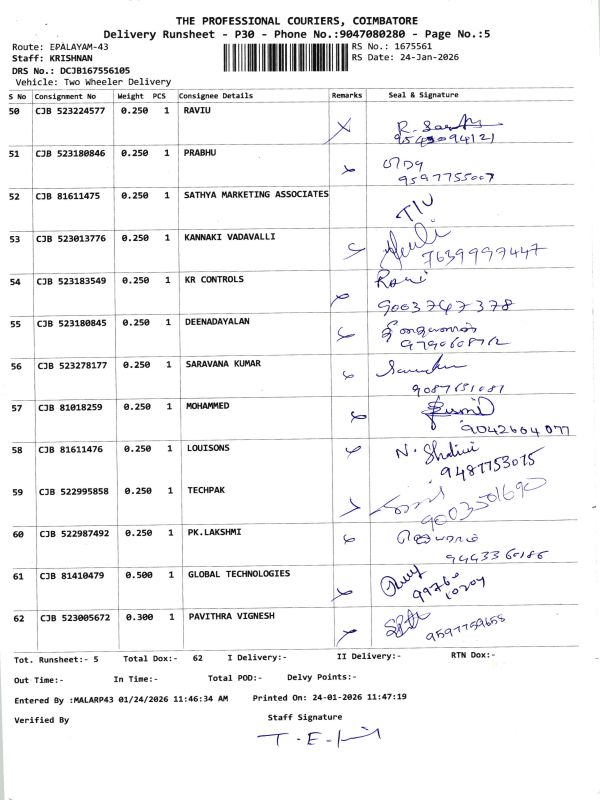 THE PROFESSIONAL COURIERS, COIMBATORE
Delivery Runsheet - P30 - Phone No.:9047080280 - Page No.:5
Route: EPALAYAM-43 RS No.: 1675561
Staff: KRISHNAN RS Date: 24-Jan-2026
DRS No.: DCJB167556105
Vehicle: Two Wheeler Delivery
S No Consignment No Weight PCS Consignee Details Remarks Seal & Signature
50 CJB 523224577 0.250 1 RAVIU
51 CJB 523180846 0.250 1 PRABHU
9597755007
52 CJB 81611475 0.250 1 SATHYA MARKETING ASSOCIATES
53 CJB 523013776 0.250 1 KANNAKI VADAVALLI
7639997447
54 CJB 523183549 0.250 1 KR CONTROLS
9003747378
55 CJB 523180845 0.250 1 DEENADAYALAN
56 CJB 523278177 0.250 1 SARAVANA KUMAR
9087651081
57 CJB 81018259 0.250 1 MOHAMMED
9042604077
58 CJB 81611476 0.250 1 LOUISONS N. Shalini
9487753075
59 CJB 522995858 0.250 1 TECHPAK
9003501690
60 CJB 522987492 0.250 1 PK.LAKSHMI
9443360186
61 CJB 81410479 0.500 1 GLOBAL TECHNOLOGIES
99760
10204
62 CJB 523005672 0.300 1 PAVITHRA VIGNESH
9597759658
Tot. Runsheet:- 5 Total Dox:- 62 I Delivery:- II Delivery:- RTN Dox:-
Out Time:- In Time:- Total POD:- Delvy Points:-
Entered By :MALARP43 01/24/2026 11:46:34 AM Printed On: 24-01-2026 11:47:19
Verified By Staff Signature